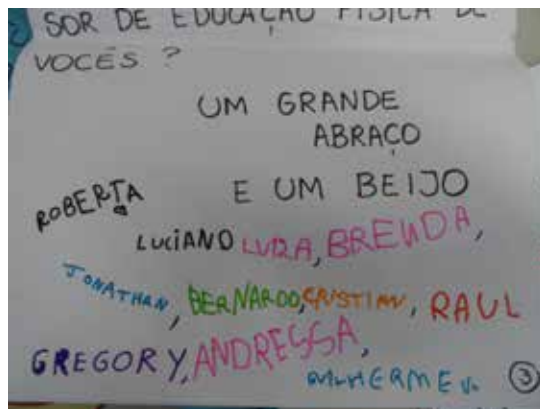 SOR DE EDUCAÇÃO FISICA DE
VOCÊS ?
UM GRANDE
ABRAÇO
E UM BEIJO
ROBERTA
LUCIANO LUIZA, BRENDA,
JONATHAN, BERNARDO, CRISTIAN, RAUL
GREGORY, ANDRESSA,
3